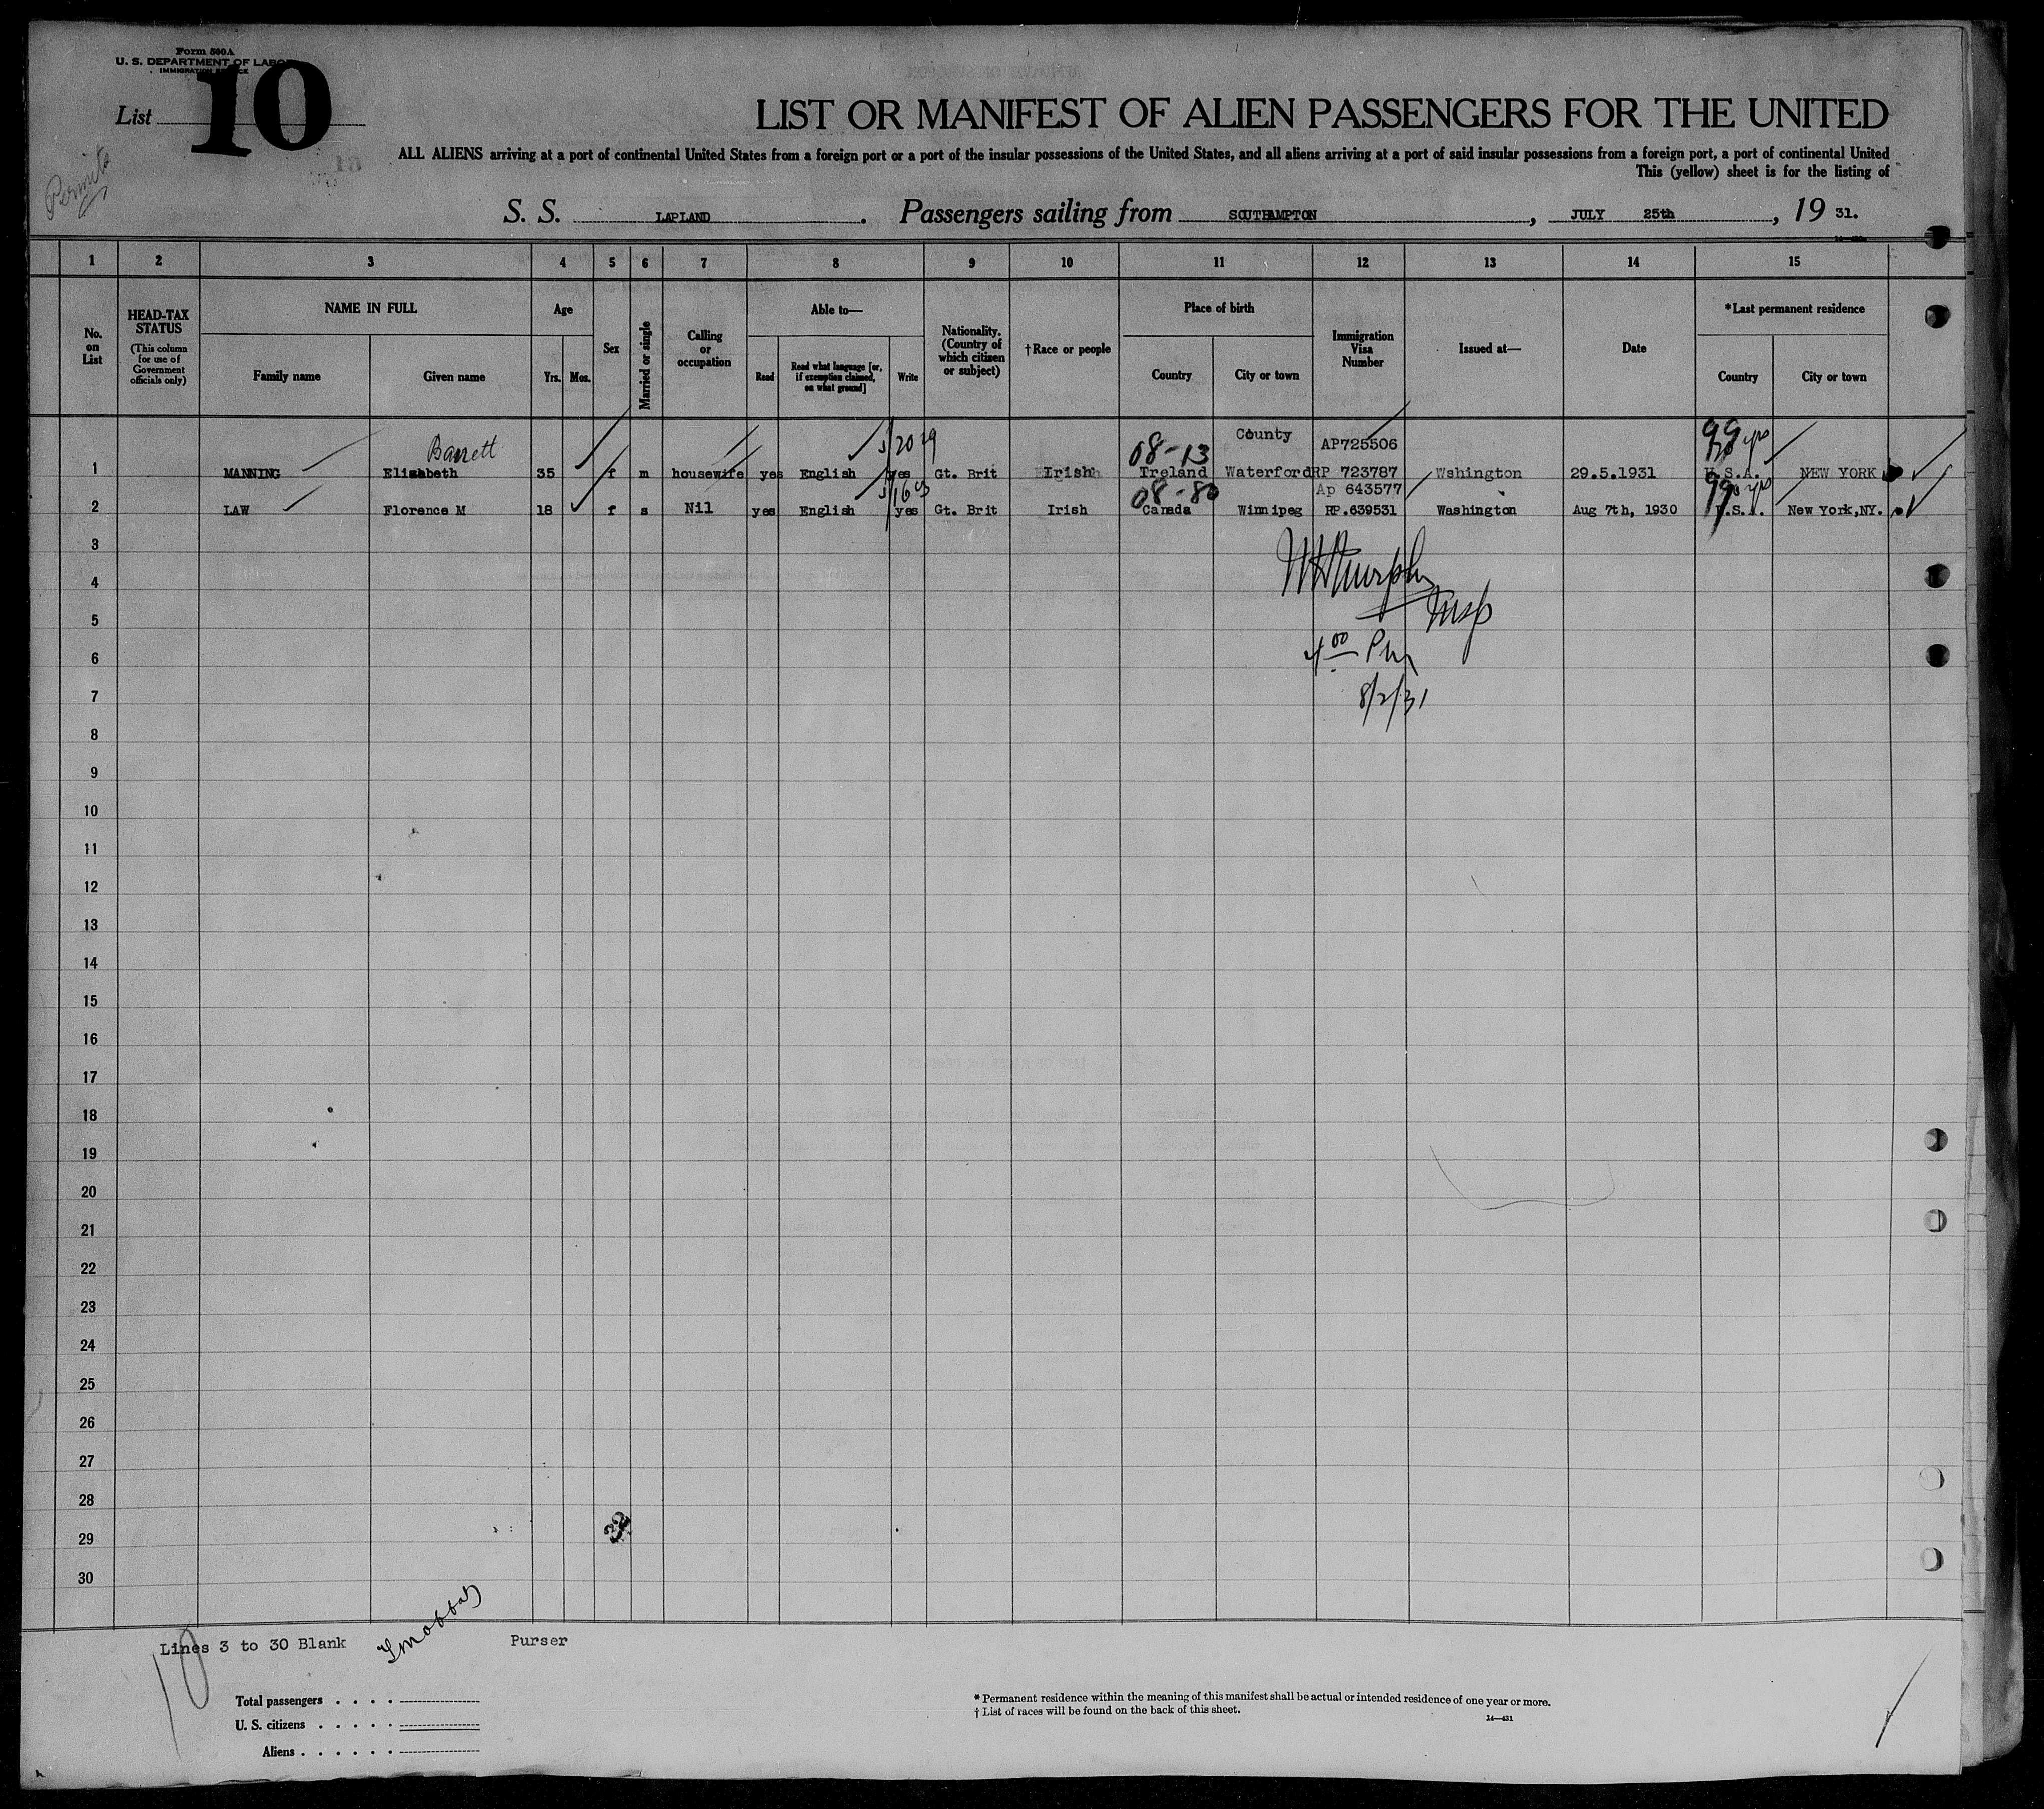 Form 500 A
U. S. DEPARTMENT OF LABOR
IMMIGRATION SERVICE
List 10
Permits
LIST OR MANIFEST OF ALIEN PASSENGERS FOR THE UNITED
ALL ALIENS arriving at a port of continental United States from a foreign port or a port of the insular possessions of the United States, and all aliens arriving at a port of said insular possessions from a foreign port, a port of continental United
This (yellow) sheet is for the listing of
S. S. LAPLAND. Passengers sailing from SOUTHAMPTON, JULY 25th, 19 31.
1 2 3 4 5 6 7 8 9 10 11 12 13 14 15
No. on List
HEAD-TAX STATUS
(This column for use of Government officials only)
NAME IN FULL
Family name Given name
Age
Yrs. Mos.
Sex
Married or single
Calling or occupation
Able to—
Read Read what language [or, if exemption claimed, on what ground] Write
Nationality. (Country of which citizen or subject)
†Race or people
Place of birth
Country City or town
Immigration Visa Number
Issued at—
Date
*Last permanent residence
Country City or town
Barrett 5/20 29 08-13 County AP725506
1 MANNING Elizabeth 35 f m housewife yes English yes Gt. Brit Irish Ireland Waterford RP 723787 Wshington 29.5.1931 U.S.A. NEW YORK
08-80 Ap 643577
2 LAW Florence M 18 f s Nil yes English yes Gt. Brit Irish Canada Winnipeg RP.639531 Washington Aug 7th, 1930 U.S.A. New York,NY.
3
4
5
Insp
6
4 00 Pm
7
8/2/31
8
9
10
11
12
13
14
15
16
17
18
19
20
21
22
23
24
25
26
27
28
29
32
30
Lines 3 to 30 Blank Purser
10
Total passengers . . . .
U. S. citizens . . . . .
Aliens . . . . . .
* Permanent residence within the meaning of this manifest shall be actual or intended residence of one year or more.
† List of races will be found on the back of this sheet.
14—431